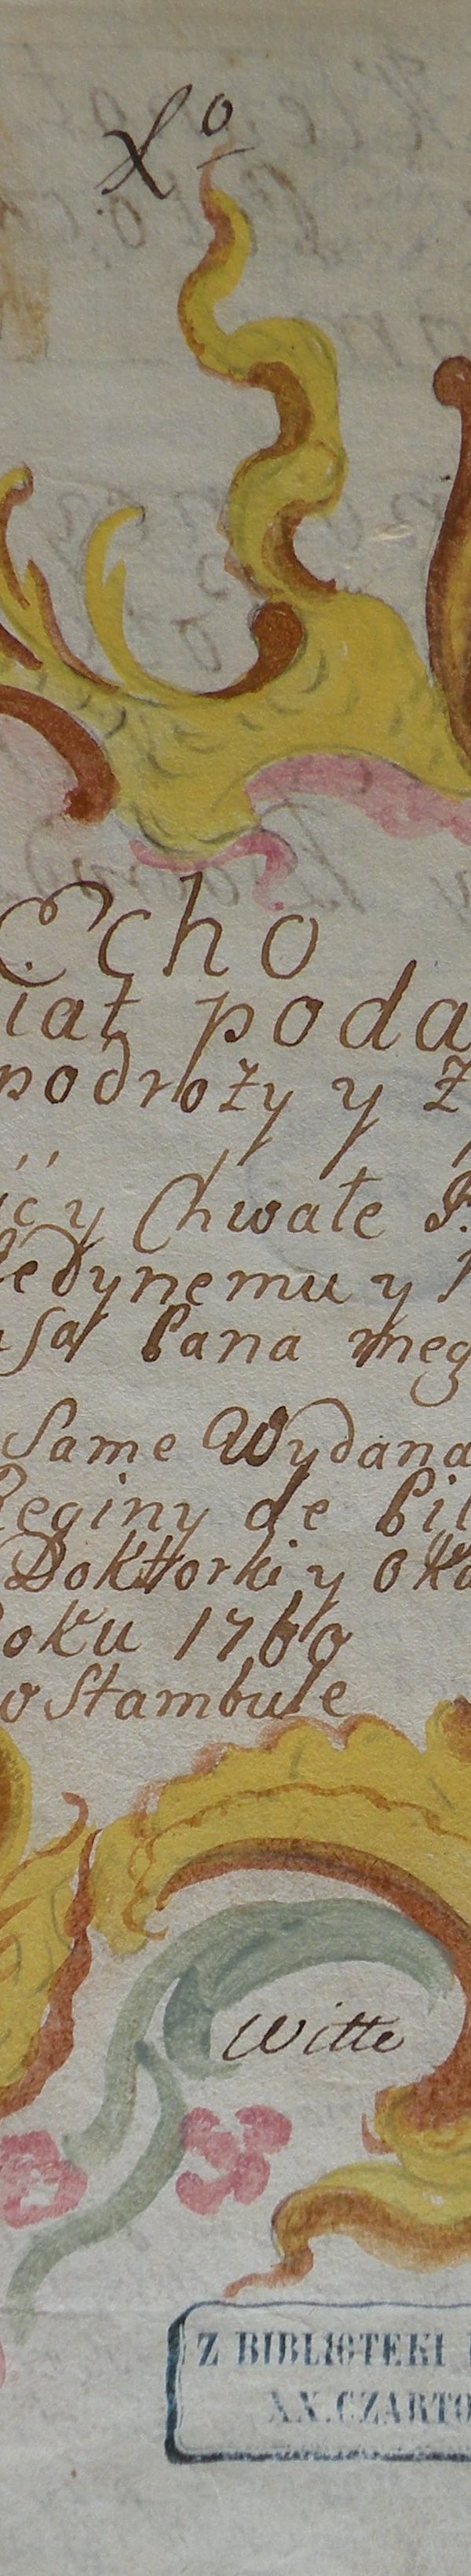 Echo
iat poda
podroży y Z
icy Chwałe
Jedynemu y
usa Pana meg
Same Wydana
Reginy de Pil
Doktorki y Oku
oku 1760
o Stambule
Witte
Z BIBLIOTEKI
XX. CZARTO